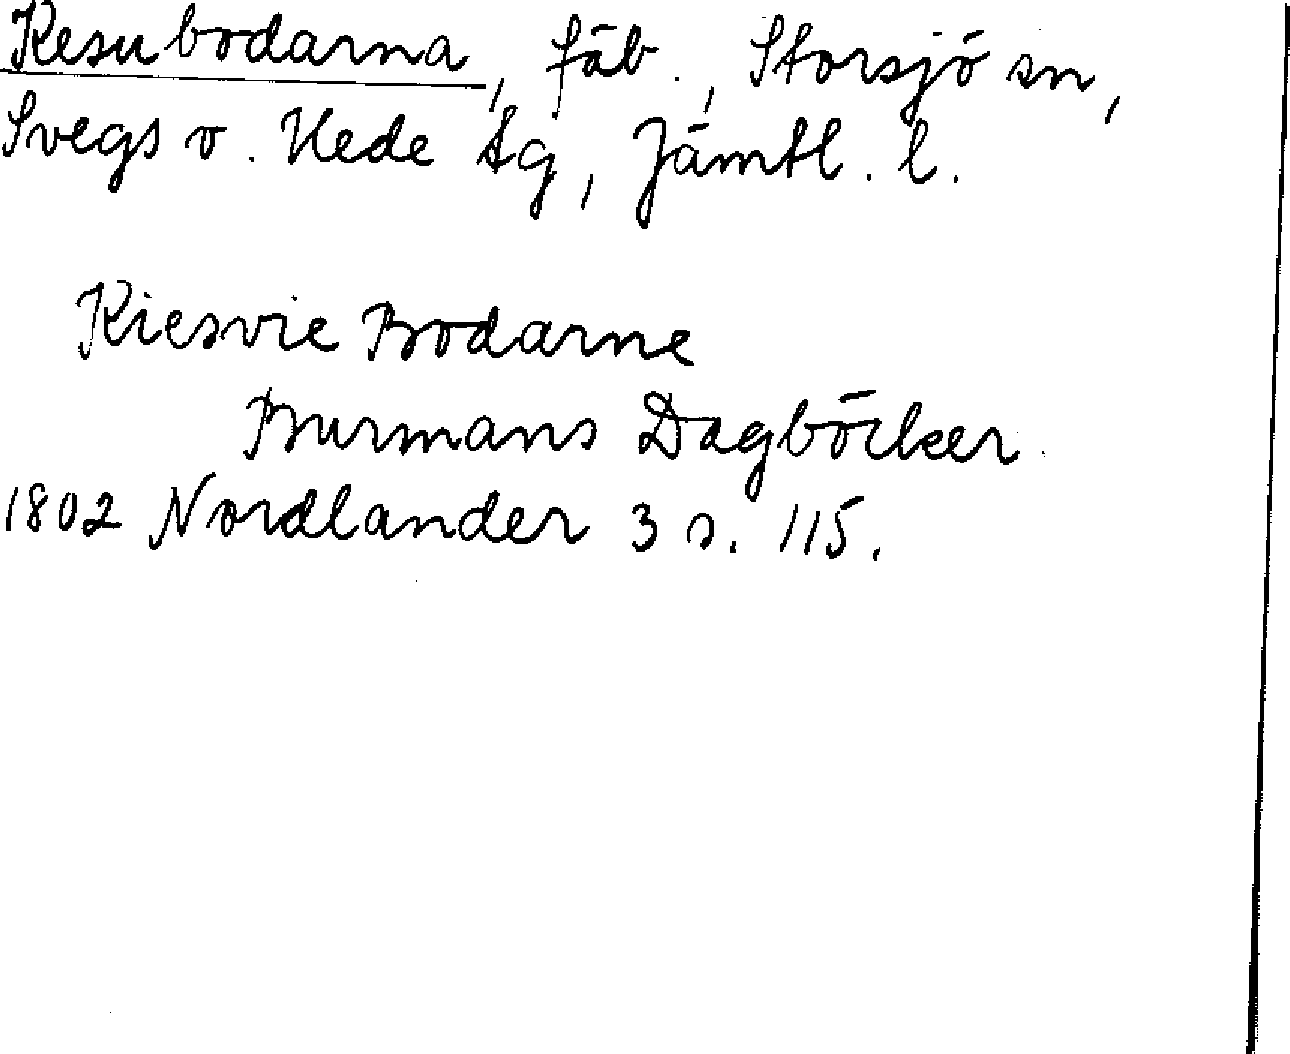 Kesubodarna, fäb., Storsjö sn,
Svegs o. Hede tg, Jämtl. l.
Kiesvie Bodarne
Burmans Dagböcker
1802 Nordlander 3 s. 115.